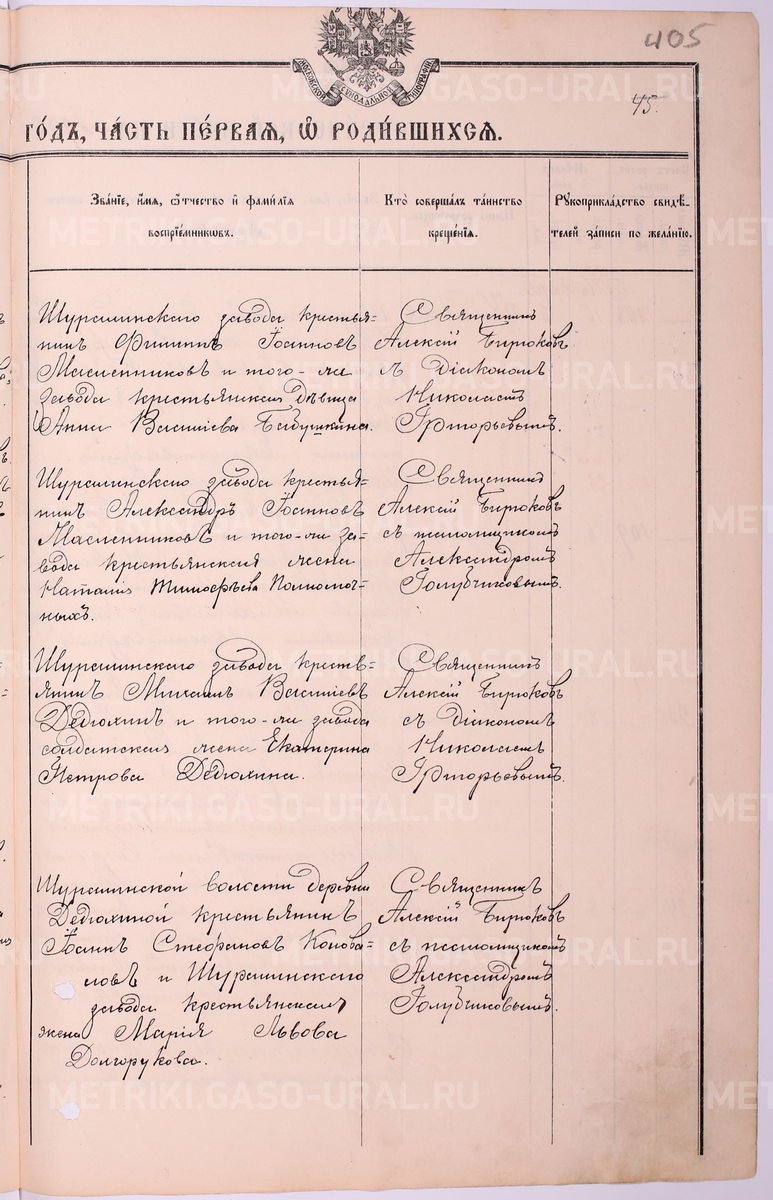 405
МОСКОВСКОЙ СѴНОДАЛЬНОЙ ТИПОГРАФІИ
45.
го́дъ, ча́сть пе́рвая, ѡ҆ роди́вшихсѧ.
Зва́нїе, и҆́мѧ, ѻ҆́тчество и҆ фами́лїѧ
воспрїе́мникѡвъ.
Кто̀ соверша́лъ та́инство
креще́нїѧ.
Рꙋкоприкла́дство свидѣ́-
телей за́писи по жела́нїю.
Шуралинскаго завода крестья-
нинъ Филиппъ Іоанновъ
Масленниковъ и того-же
завода крестьянская дѣвица
Анна Васильева Бабушкина.
Священникъ
Алексій Бирюковъ
съ діакономъ
Николаемъ
Григорьевымъ.
Шуралинскаго завода крестья-
нинъ Александръ Іоанновъ
Масленниковъ и того-же за-
вода крестьянская жена
Наталія Тимофѣева Полномоч-
ныхъ.
Священникъ
Алексій Бирюковъ
съ псаломщикомъ
Александромъ
Голубчиковымъ.
Шуралинскаго завода кресть-
янинъ Михаилъ Васильевъ
Дедюхинъ и того-же завода
солдатская жена Екатерина
Петрова Дедюхина.
Священникъ
Алексій Бирюковъ
съ діакономъ
Николаемъ
Григорьевымъ.
Шуралинской волости деревни
Дедюхиной крестьянинъ
Іоаннъ Стефановъ Конова-
ловъ и Шуралинскаго
завода крестьянская
жена Марія Львова
Долгорукова.
Священникъ
Алексій Бирюковъ
съ псаломщикомъ
Александромъ
Голубчиковымъ.
METRIKI.GASO-URAL.RU